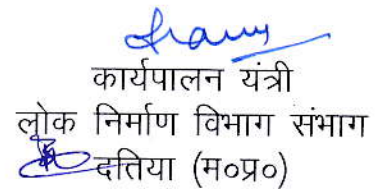 कार्यपालन यंत्री
लोक निर्माण विभाग संभाग
दतिया (म०प्र०)